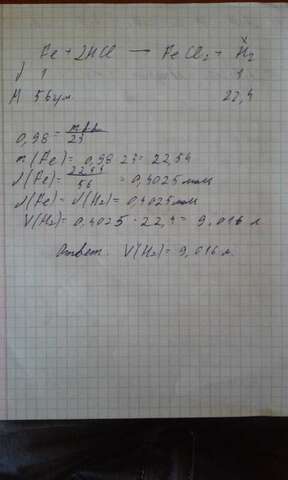 x
Fe + 2HCl → FeCl₂ + H₂
ν 1 1
M 56 г/м 22,4
0,98 = m Fe / 23
m (Fe) = 0,98 · 23 = 22,54
ν(Fe) = 22,54 / 56 = 0,4025 моль
ν(Fe) = ν(H₂) = 0,4025 моль
V(H₂) = 0,4025 · 22,4 = 9,016 л
Ответ: V(H₂) = 9,016 л.